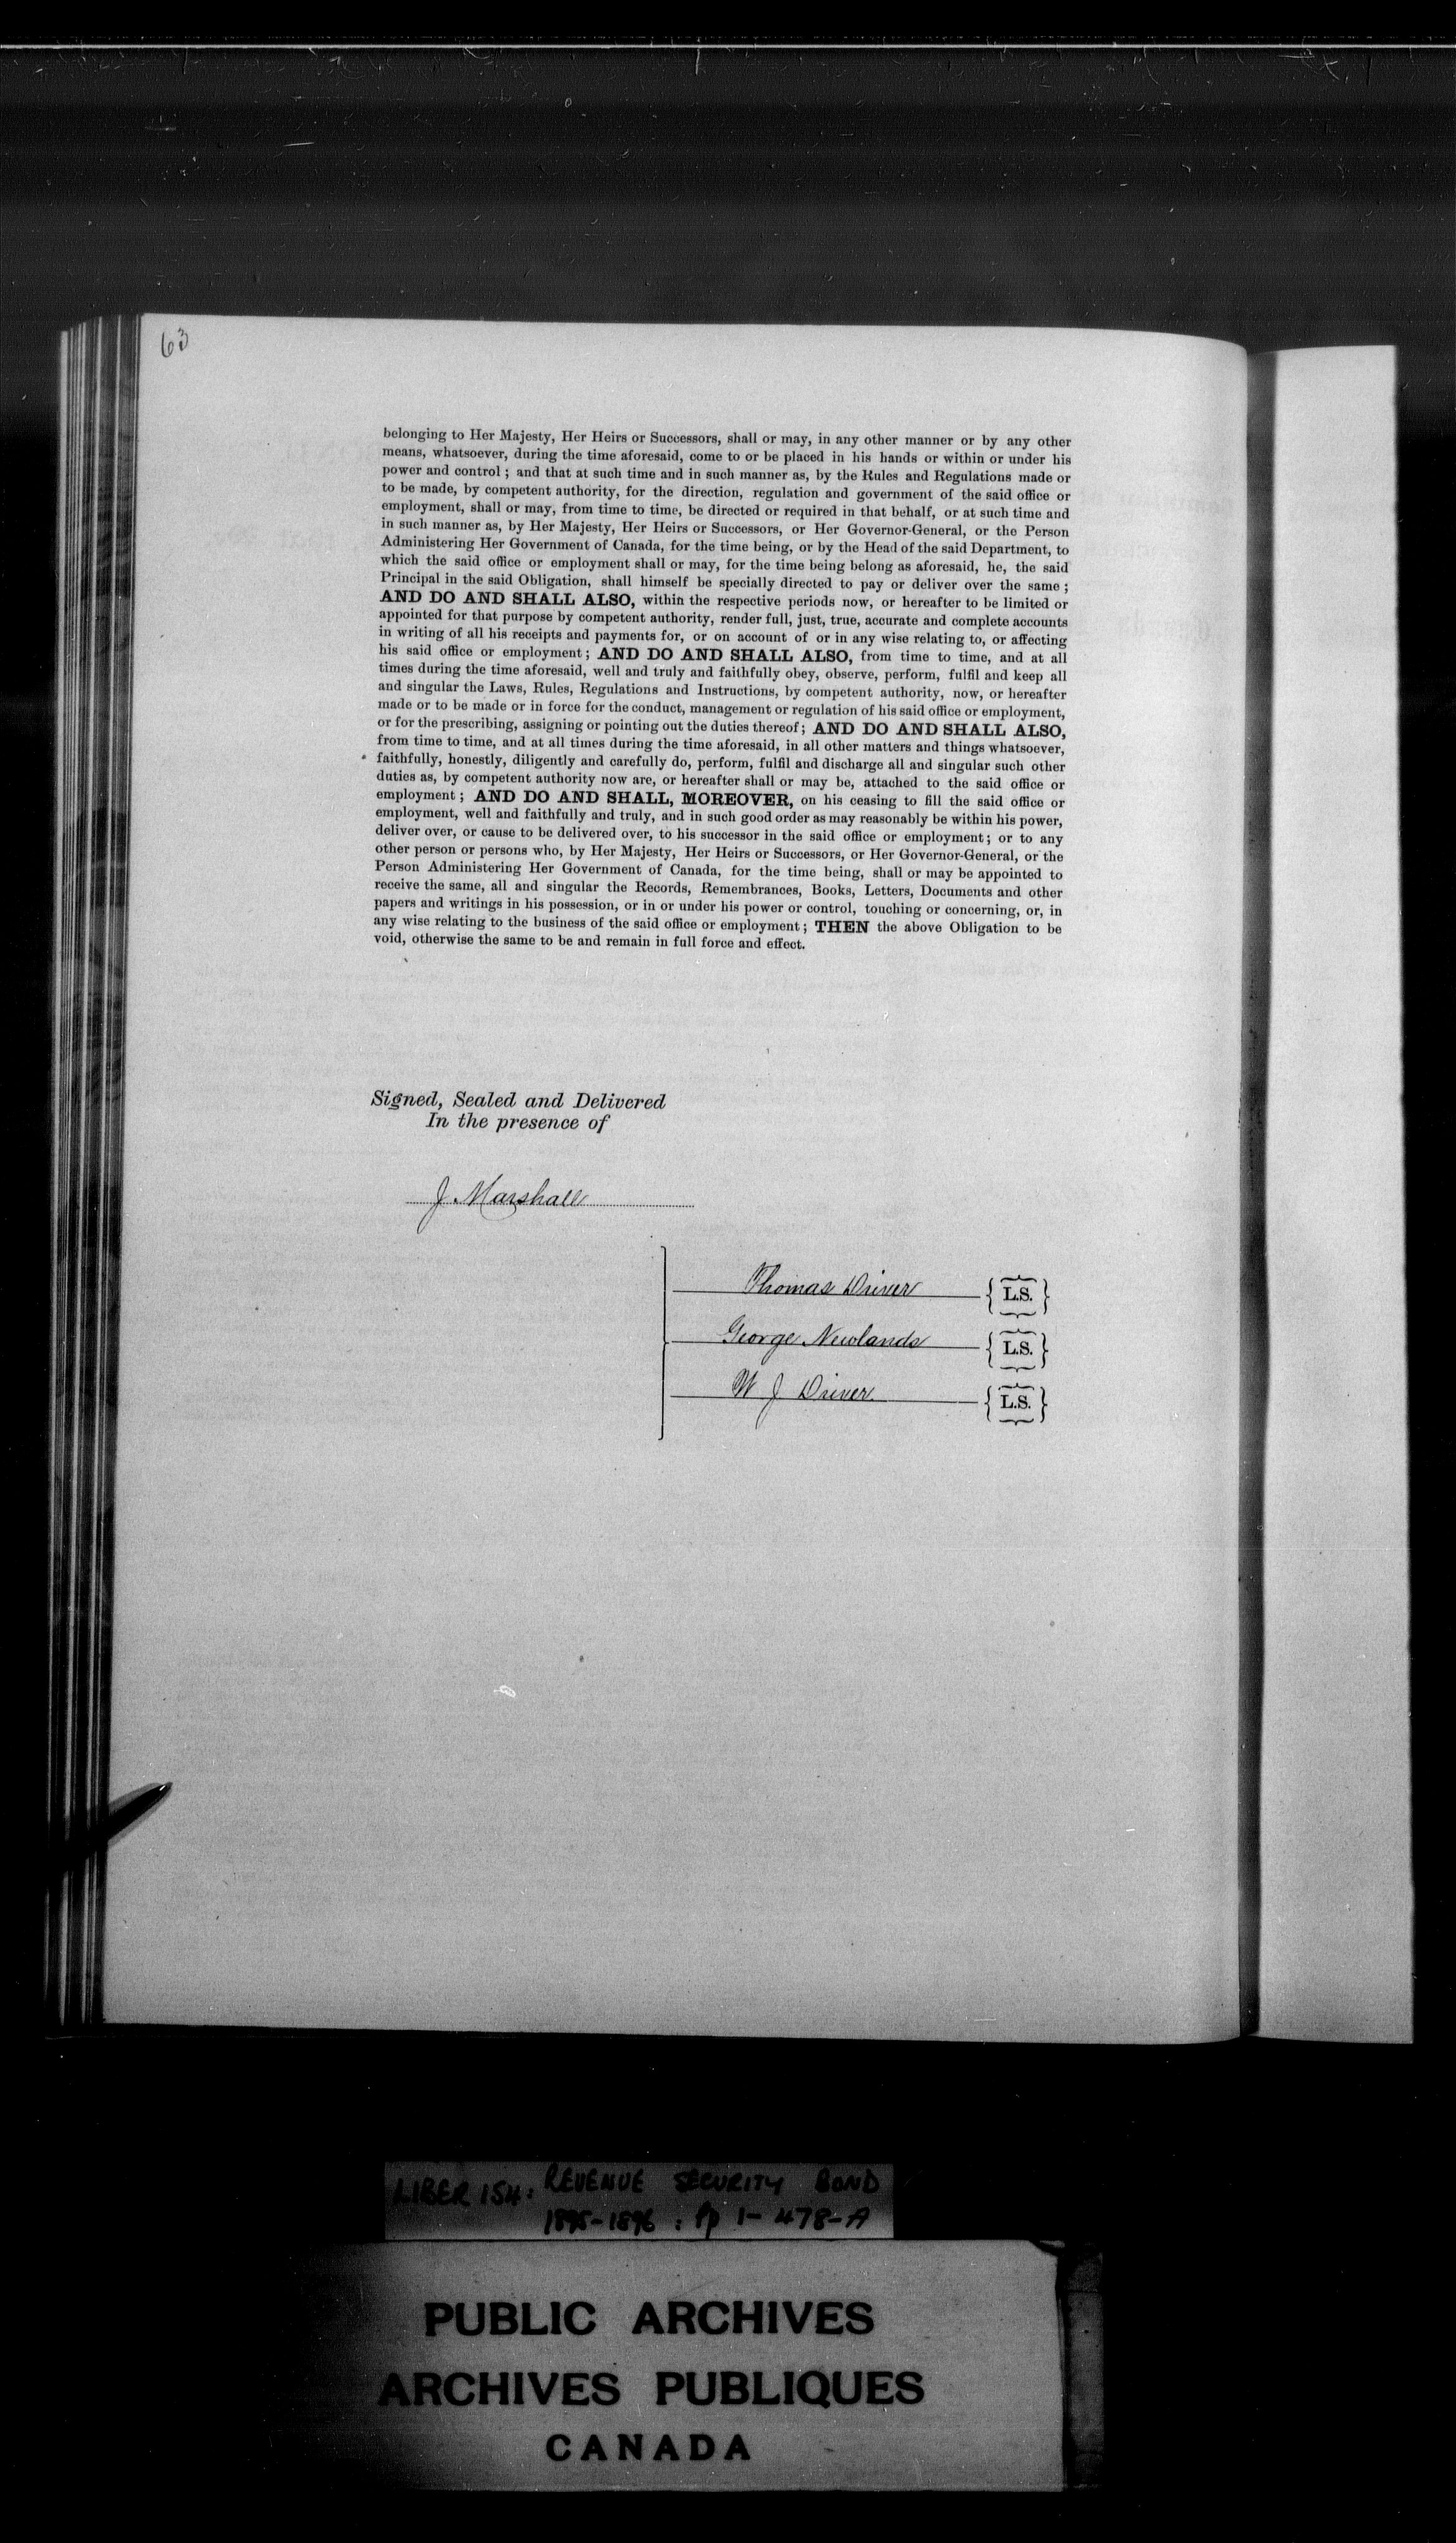 63
belonging to Her Majesty, Her Heirs or Successors, shall or may, in any other manner or by any other
means, whatsoever, during the time aforesaid, come to or be placed in his hands or within or under his
power and control ; and that at such time and in such manner as, by the Rules and Regulations made or
to be made, by competent authority, for the direction, regulation and government of the said office or
employment, shall or may, from time to time, be directed or required in that behalf, or at such time and
in such manner as, by Her Majesty, Her Heirs or Successors, or Her Governor-General, or the Person
Administering Her Government of Canada, for the time being, or by the Head of the said Department, to
which the said office or employment shall or may, for the time being belong as aforesaid, he, the said
Principal in the said Obligation, shall himself be specially directed to pay or deliver over the same ;
AND DO AND SHALL ALSO, within the respective periods now, or hereafter to be limited or
appointed for that purpose by competent authority, render full, just, true, accurate and complete accounts
in writing of all his receipts and payments for, or on account of or in any wise relating to, or affecting
his said office or employment ; AND DO AND SHALL ALSO, from time to time, and at all
times during the time aforesaid, well and truly and faithfully obey, observe, perform, fulfil and keep all
and singular the Laws, Rules, Regulations and Instructions, by competent authority, now, or hereafter
made or to be made or in force for the conduct, management or regulation of his said office or employment,
or for the prescribing, assigning or pointing out the duties thereof ; AND DO AND SHALL ALSO,
from time to time, and at all times during the time aforesaid, in all other matters and things whatsoever,
faithfully, honestly, diligently and carefully do, perform, fulfil and discharge all and singular such other
duties as, by competent authority now are, or hereafter shall or may be, attached to the said office or
employment ; AND DO AND SHALL, MOREOVER, on his ceasing to fill the said office or
employment, well and faithfully and truly, and in such good order as may reasonably be within his power,
deliver over, or cause to be delivered over, to his successor in the said office or employment ; or to any
other person or persons who, by Her Majesty, Her Heirs or Successors, or Her Governor-General, or the
Person Administering Her Government of Canada, for the time being, shall or may be appointed to
receive the same, all and singular the Records, Remembrances, Books, Letters, Documents and other
papers and writings in his possession, or in or under his power or control, touching or concerning, or, in
any wise relating to the business of the said office or employment ; THEN the above Obligation to be
void, otherwise the same to be and remain in full force and effect.
Signed, Sealed and Delivered
In the presence of
J. Marshall
Thomas Driver { L.S. }
George Newlands { L.S. }
W J Driver { L.S. }
LIBER 154: REVENUE SECURITY BOND
1895-1896 : Pp 1- 478-A
PUBLIC ARCHIVES
ARCHIVES PUBLIQUES
CANADA